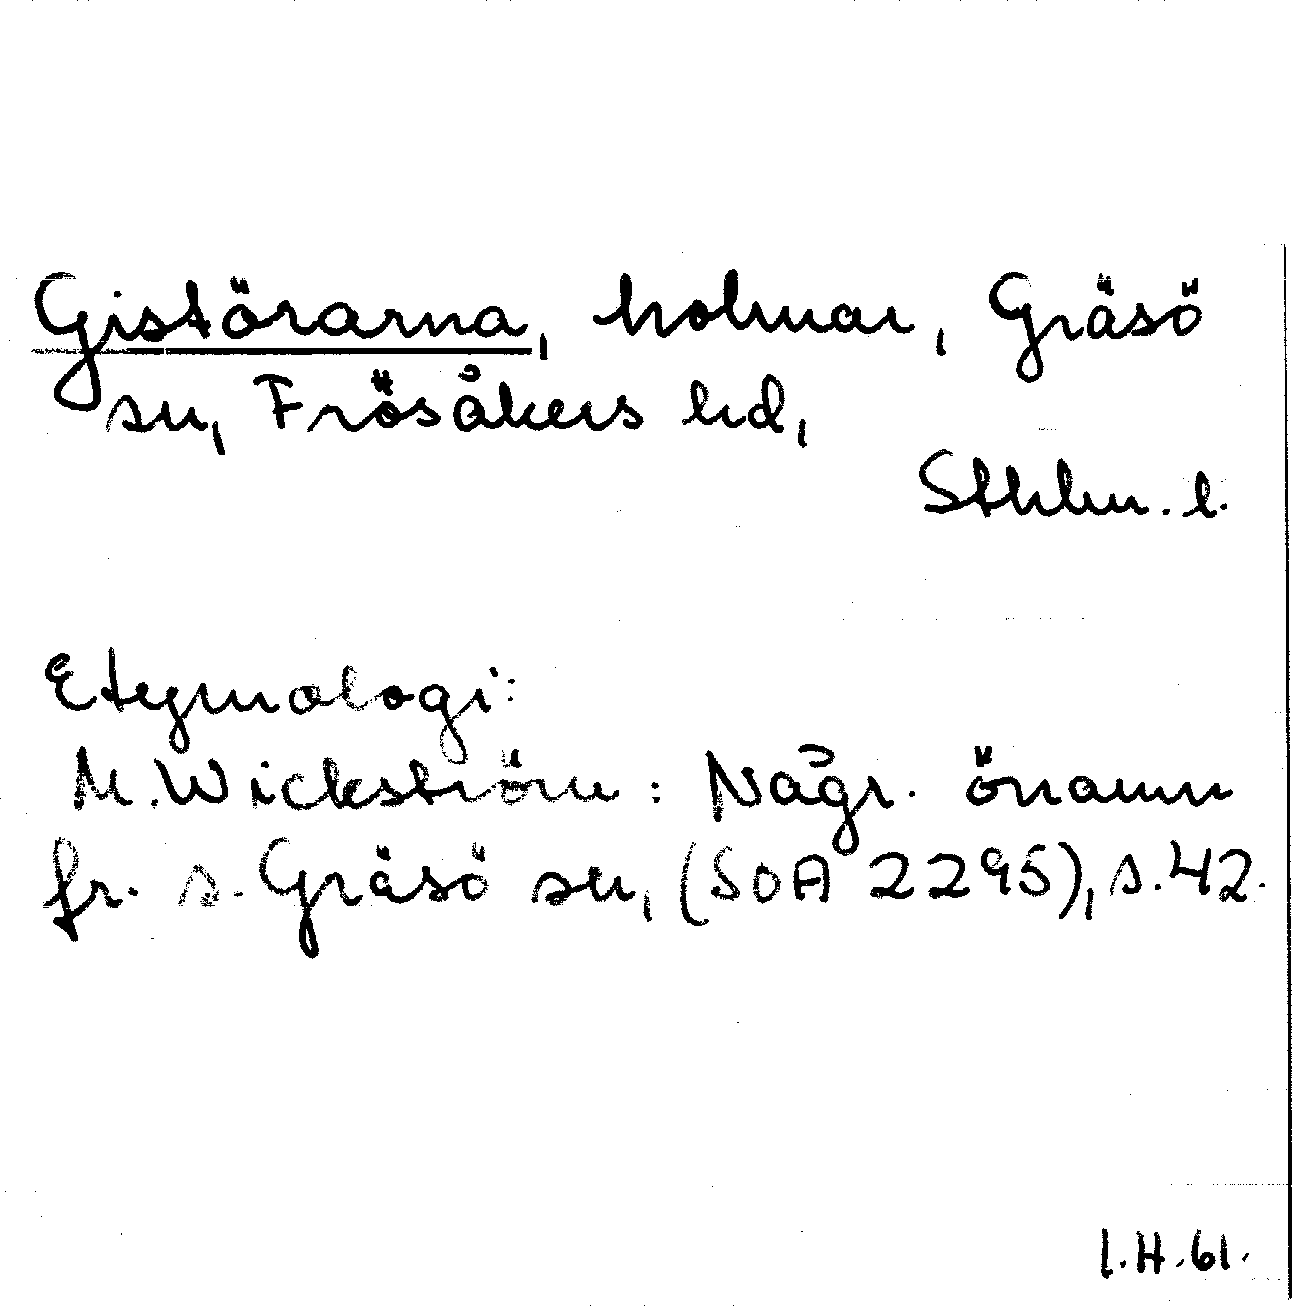 Gistörarna, holmar, Gräsö
sn, Frösåkers hd,
Sthlm. l.
Etymologi:
M. Wickström: Någr. önamn
fr. s. Gräsö sn, (SOA 2295), s. 42.
I.H. 61.